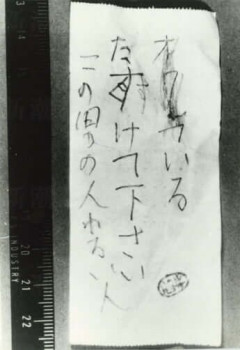 オワれている
たすけて下さい
この男の人わるい人
INDUSTRY
20
21
22